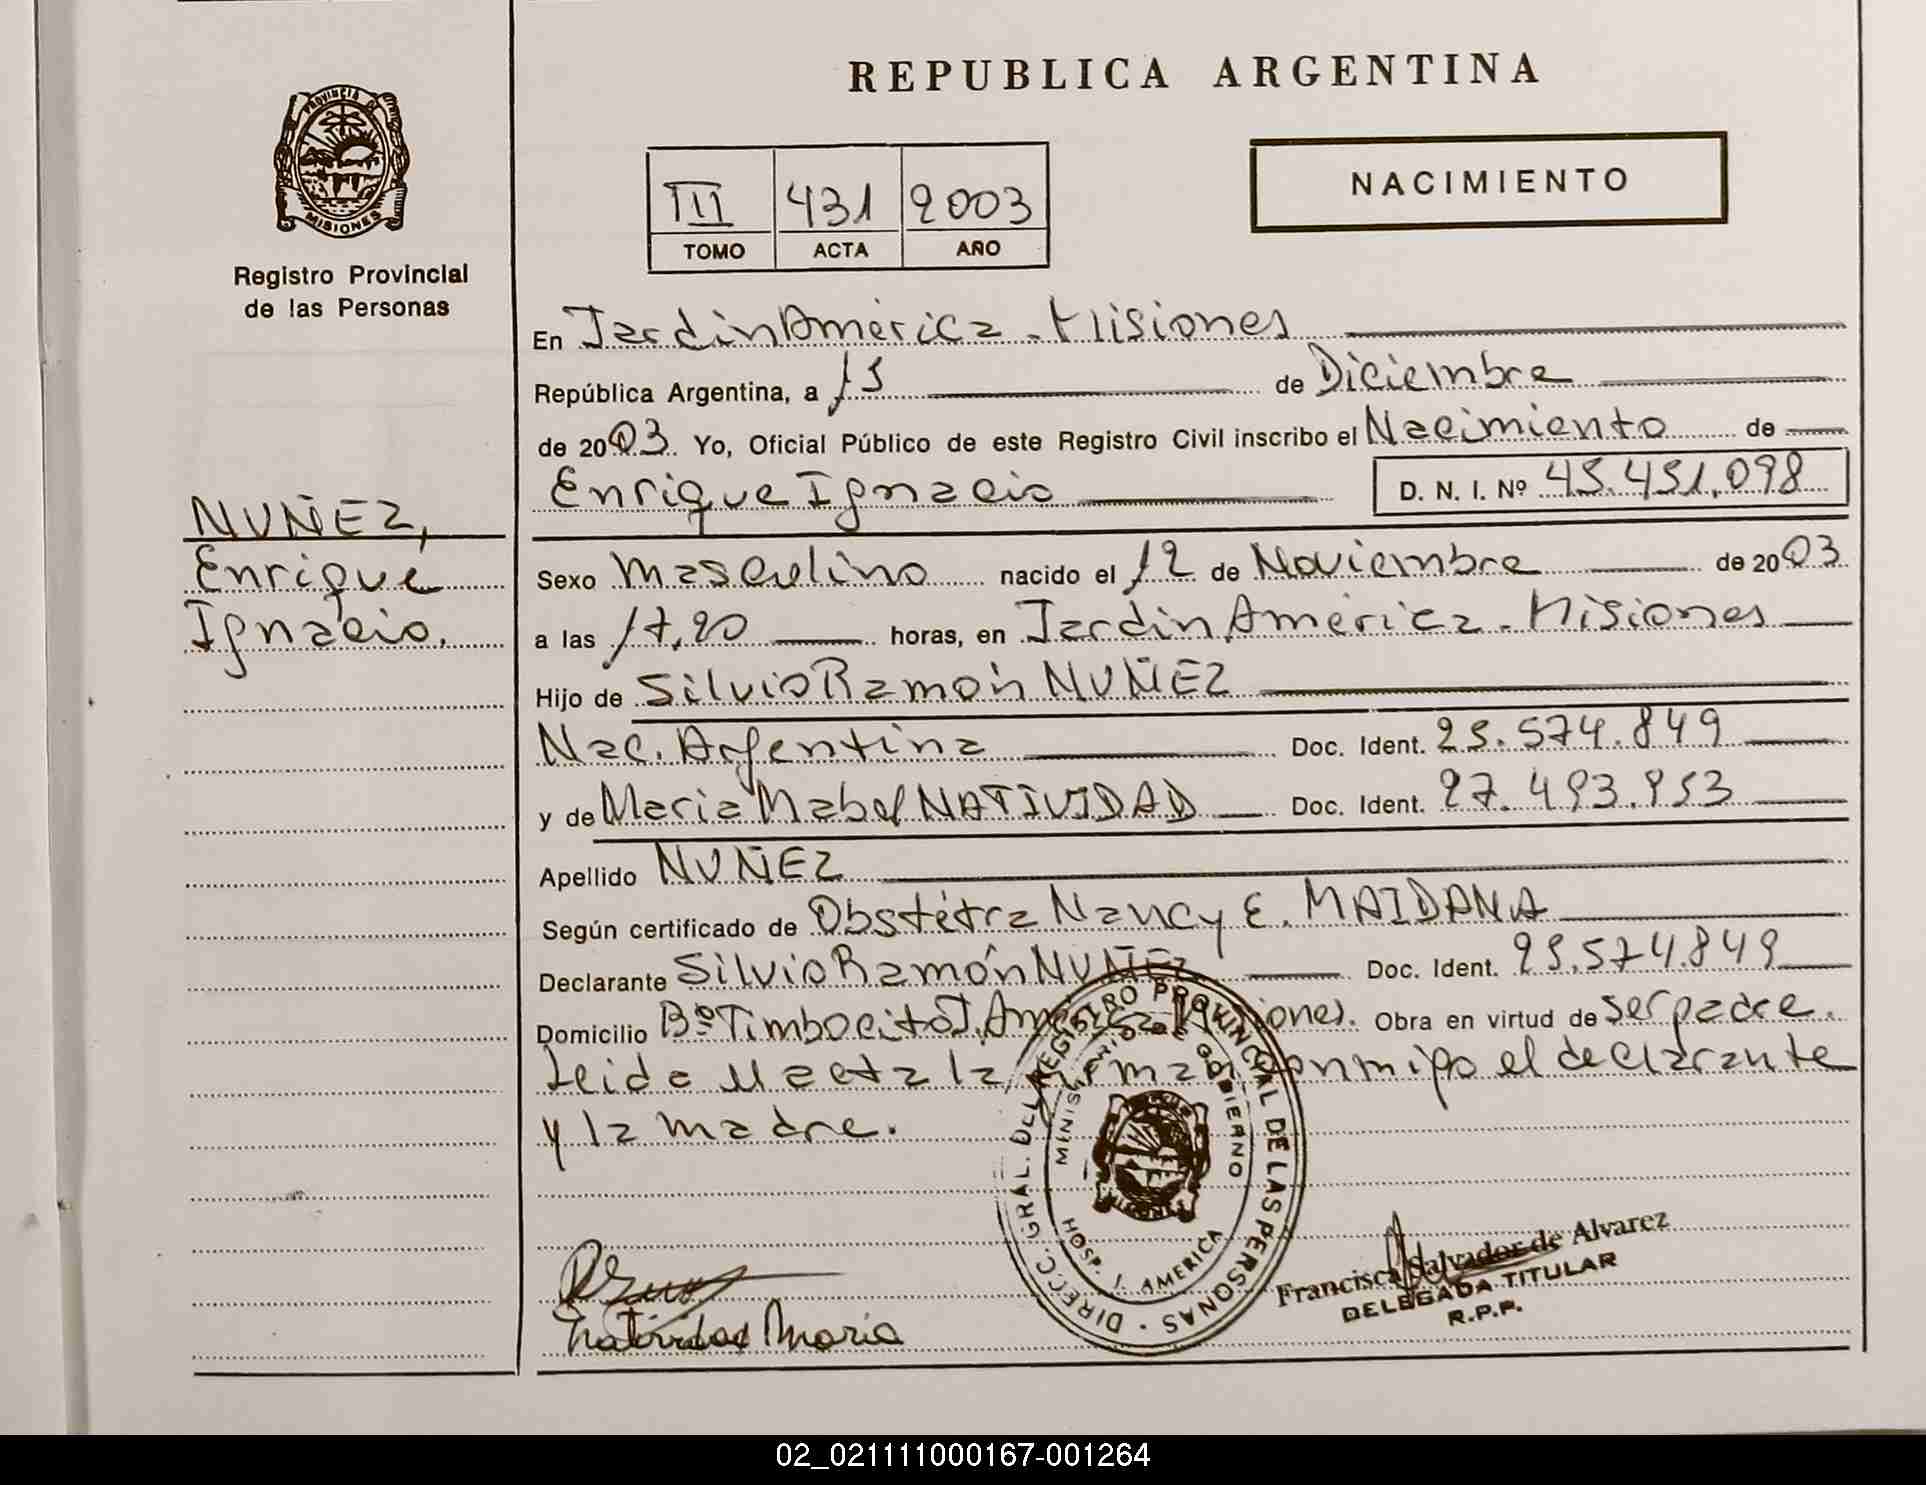 REPUBLICA ARGENTINA
PROVINCIA DE
MISIONES
Registro Provincial
de las Personas
III 431 2003
TOMO ACTA AÑO
NACIMIENTO
En Jardin America - Misiones
República Argentina, a 15 de Diciembre
de 2003. Yo, Oficial Público de este Registro Civil inscribo el Nacimiento de
Enrique Ignacio D. N. I. Nº 45.451.098
NUÑEZ,
Enrique
Ignacio.
Sexo Masculino nacido el 12 de Noviembre de 2003
a las 17,20 horas, en Jardin America - Misiones
Hijo de Silvio Ramón NUÑEZ
Nac. Argentina Doc. Ident. 25.574.849
y de Maria Mabel NATIVIDAD Doc. Ident. 27.493.953
Apellido NUÑEZ
Según certificado de Obstétra Nancy E. MAIDANA
Declarante Silvio Ramón NUÑEZ Doc. Ident. 25.574.849
Domicilio Bº Timbocito J. America Misiones. Obra en virtud de ser padre.
Leida el acta la firman conmigo el declarante
y la madre.
DIRECC. GRAL. DEL REGISTRO PROVINCIAL DE LAS PERSONAS
MINISTERIO DE GOBIERNO
HOSP. J. AMERICA
Natividad Maria
Francisca Salvador de Alvarez
DELEGADA TITULAR
R.P.P.
02_021111000167-001264